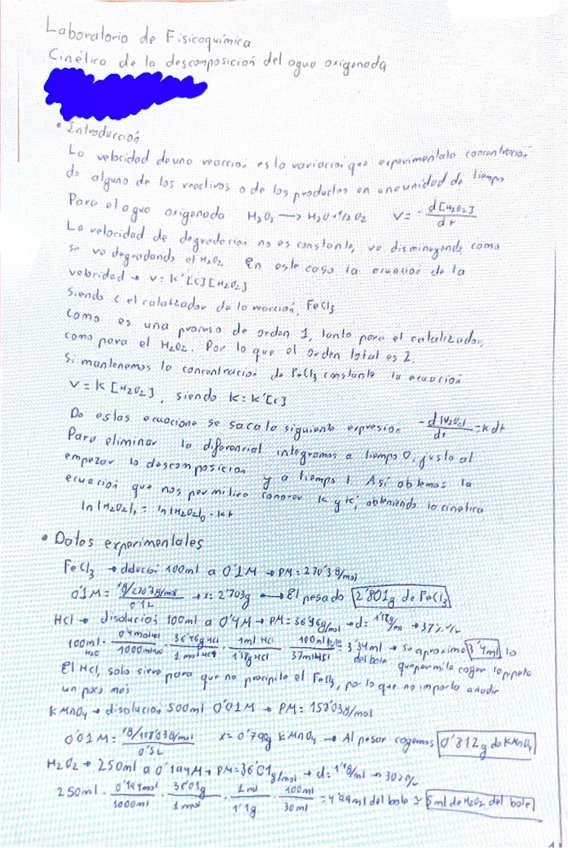 Laboratorio de Fisicoquímica
Cinética de la descomposición del agua oxigenada
• Introducción
La velocidad de una reacción es la variación que experimenta la concentración
de alguno de los reactivos o de los productos en una unidad de tiempo
Para el agua oxigenada H₂O₂ → H₂O + 1/2 O₂ V = - d[H₂O₂]/dt
La velocidad de degradación no es constante, va disminuyendo como
se va degradando el H₂O₂. En este caso la ecuación de la
velocidad → v = k'[c][H₂O₂]
Siendo c el catalizador de la reacción, FeCl₃
Como es una proceso de orden 1, tanto para el catalizador,
como para el H₂O₂. Por lo que el orden total es 2.
Si mantenemos la concentración de FeCl₃ constante la ecuación
V = k[H₂O₂], siendo k = k'[c]
De estas ecuaciones se saca la siguiente expresión - d[H₂O₂]/dt = k dt
Para eliminar la diferencial integramos a tiempo 0, justo al
empezar la descomposición y a tiempo t. Así obtemos la
ecuación que nos permitirá conocer k y k', obteniendo la cinética
ln[H₂O₂]t = ln[H₂O₂]₀ - kt
• Datos experimentales
FeCl₃ → 100ml a 0'1M → PM = 270'3g/mol
0'1M = → x = 2'703g → El pesado 2'801g de FeCl₃
HCl → disolución 100ml a 0'4M → PM = 36'46g/mol → d = → 37%
100ml · 0'4mol HCl/1000ml · 36'46g HCl/1mol HCl · 1ml HCl · 100ml/37ml HCl = 3'34ml → Se aproxima 3'4ml lo
del bote que permite coger la pipeta
El HCl, solo sirve para que no precipite el FeCl₃, por lo que no importa añadir
un poco más
KMnO₄ → disolución 500ml 0'01M → PM = 158'03g/mol
0'01M = /0'5L x = 0'790g KMnO₄ → Al pesar cogemos 0'812g de KMnO₄
H₂O₂ → 250ml a 0'194M → PM = 36'01g/mol → d = 1'1g/ml → 30%
250ml · 0'194mol/1000ml · 36'01g/1mol · 1ml/1'1g · 100ml/30ml = ml del bote ≃ 5ml de H₂O₂ del bote